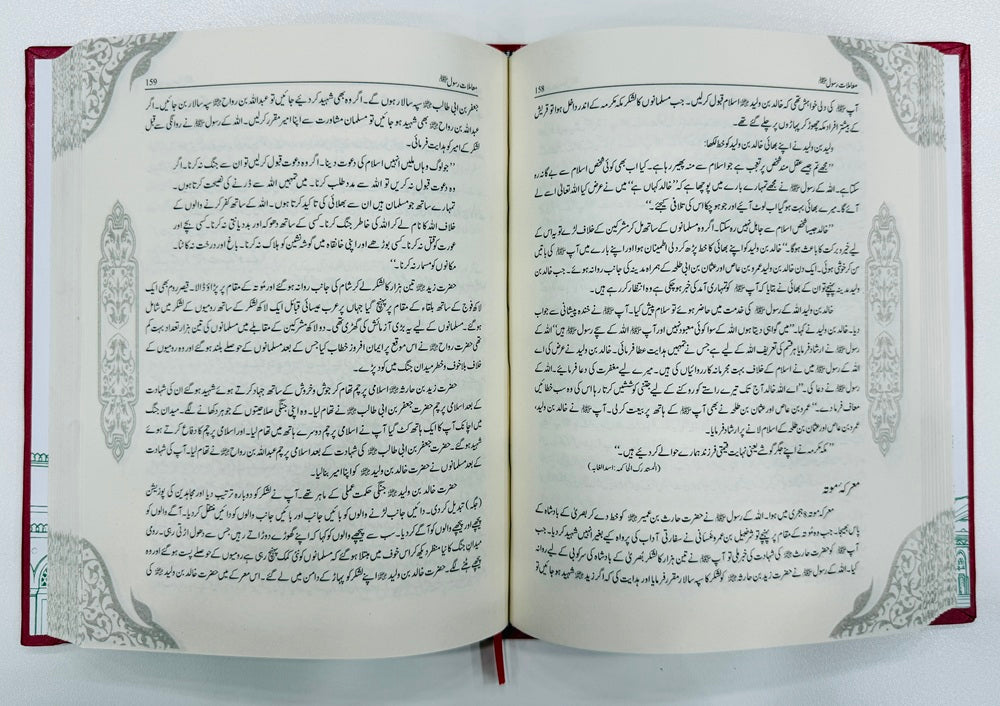 معاملات رسول ﷺ
158
آپ ﷺ کی دلی خواہش تھی کہ خالد بن ولید ؓ اسلام قبول کر لیں۔ جب مسلمانوں کا لشکر مکہ مکرمہ کے اندر داخل ہوا تو قریش
کے بیشتر افراد مکہ چھوڑ کر پہاڑوں پر چلے گئے تھے۔
ولید بن ولید نے اپنے بھائی خالد بن ولید کو خط لکھا:
’’مجھے تم جیسے عقل مند شخص پر تعجب ہے جو اسلام سے منہ پھیر رہا ہے۔ کیا اب بھی کوئی شخص اسلام سے بے گانہ رہ
سکتا ہے۔ اللہ کے رسول ﷺ نے مجھے تمہارے بارے میں پوچھا ہے کہ ’’خالد کہاں ہے‘‘ میں نے عرض کیا اللہ تعالیٰ اسے لے
آئے گا۔ میرے بھائی بہت ہوگیا اب لوٹ آئیے اور جو ہو چکا اس کی تلافی کیجئے۔‘‘
’’خالد جیسا شخص اسلام سے جاہل نہیں رہ سکتا۔ اگر وہ مسلمانوں کے ساتھ مل کر مشرکین کے خلاف لڑے تو یہ اس کے
لیے خیر و برکت کا باعث ہوگا۔‘‘ خالد بن ولید کو اپنے بھائی کا خط پڑھ کر دلی اطمینان ہوا اور اپنے بارے میں آپ ﷺ کی باتیں
سن کر خوشی ہوئی۔ ایک دن خالد بن ولید عمرو بن عاص اور عثمان بن ابی طلحہ کے ہمراہ مدینہ کی جانب روانہ ہوئے۔ جب خالد بن
ولید مدینہ پہنچے تو ان کے بھائی نے بتایا کہ آپ ﷺ کو تمہاری آمد کی خبر ہو چکی ہے وہ انتظار کر رہے ہیں۔
خالد بن ولید اللہ کے رسول ﷺ کی خدمت میں حاضر ہوئے تو سلام پیش کیا۔ آپ ﷺ نے خندہ پیشانی سے جواب
دیا۔ خالد بن ولید نے کہا۔ ’’میں گواہی دیتا ہوں اللہ کے سوا کوئی معبود نہیں اور آپ ﷺ اللہ کے سچے رسول ﷺ ہیں‘‘ اللہ کے
رسول ﷺ نے ارشاد فرمایا ہر قسم کی تعریف اللہ کے لیے ہے جس نے تمہیں ہدایت عطا فرمائی۔ خالد بن ولید نے عرض کی اے
اللہ کے رسول ﷺ میں نے اسلام کے خلاف بہت مجرمانہ کارروائیاں کی ہیں۔ میرے لیے مغفرت کی دعا فرمائیے۔ اللہ کے
رسول ﷺ نے دعا کی۔ ’’اے اللہ خالد آج تک تیرے راستے کو روکنے کے لیے جتنی کوششیں کرتا رہا اس کی وہ سب خطائیں
معاف فرما دے۔‘‘ عمرو بن عاص اور عثمان بن طلحہ نے بھی آپ ﷺ کے ہاتھ پر بیعت کر لی۔ آپ ﷺ نے خالد بن ولید،
عمرو بن عاص اور عثمان بن طلحہ کے اسلام لانے پر ارشاد فرمایا۔
’’مکہ مکرمہ نے اپنے جگر گوشے یعنی نہایت قیمتی فرزند ہمارے حوالے کر دیئے ہیں۔‘‘
(المستدرک الحاکم: اسد الغابہ)
معرکہ موتہ
معرکہ موتہ 8 ہجری میں ہوا۔ اللہ کے رسول ﷺ نے حضرت حارث بن عمیر ؓ کو خط دے کر بصریٰ کے بادشاہ کے
پاس بھیجا۔ جب وہ موتہ کے مقام پر پہنچے تو شرحبیل بن عمرو غسانی نے سفارتی آداب کی پرواہ کیے بغیر انہیں شہید کر دیا۔ جب
آپ ﷺ کو حضرت حارث ؓ کی شہادت کی خبر ملی تو آپ ﷺ نے تین ہزار کا لشکر بصریٰ کے بادشاہ کی سرکوبی کے لیے روانہ
کیا۔ اللہ کے رسول ﷺ نے حضرت زید بن حارثہ ؓ کو لشکر کا سپہ سالار مقرر فرمایا اور ہدایت کی کہ اگر زید ؓ شہید ہو جائیں تو
معاملات رسول ﷺ
159
جعفر بن ابی طالب ؓ سپہ سالار ہوں گے۔ اگر وہ بھی شہید کر دیئے جائیں تو عبداللہ بن رواحہ ؓ سپہ سالار بن جائیں۔ اگر
عبداللہ بن رواحہ ؓ بھی شہید ہو جائیں تو مسلمان مشاورت سے اپنا امیر مقرر کر لیں۔ اللہ کے رسول ﷺ نے روانگی سے قبل
لشکر کے امیر کو ہدایت فرمائی۔
’’جو لوگ وہاں ملیں انہیں اسلام کی دعوت دینا۔ اگر وہ دعوت قبول کر لیں تو ان سے جنگ نہ کرنا۔ اگر
وہ دعوت قبول نہ کریں تو اللہ سے مدد طلب کرنا۔ میں تمہیں اللہ سے ڈرنے کی نصیحت کرتا ہوں۔
تمہارے ساتھ جو مسلمان ہیں ان سے بھلائی کی تاکید کرتا ہوں۔ اللہ کے ساتھ کفر کرنے والوں کے
خلاف اللہ کا نام لے کر اللہ کی خاطر جنگ کرنا۔ کسی کے ساتھ دھوکہ اور بددیانتی نہ کرنا۔ کسی بچے اور
عورت کو قتل نہ کرنا۔ کسی بوڑھے اور اپنی خانقاہ میں گوشہ نشین کو ہلاک نہ کرنا۔ باغ اور درخت نہ کاٹنا۔
مکانوں کو مسمار نہ کرنا۔‘‘
حضرت زید ؓ تین ہزار کا لشکر لے کر شام کی جانب روانہ ہوگئے اور موتہ کے مقام پر پڑاؤ ڈالا۔ قیصر روم بھی ایک
لاکھ فوج کے ساتھ بلقاء کے مقام پر پہنچ گیا جہاں پر عرب عیسائی قبائل ایک لاکھ لشکر کے ساتھ رومیوں کے لشکر میں شامل
ہوگئے۔ مسلمانوں کے لیے یہ بڑی آزمائش کی گھڑی تھی۔ دو لاکھ مشرکین کے مقابلے میں مسلمانوں کی تین ہزار تعداد بہت کم
تھی حضرت رواحہ ؓ نے اس موقع پر ایمان افروز خطاب کیا جس کے بعد مسلمانوں کے حوصلے بلند ہوگئے اور وہ رومیوں کے
خلاف بلا خوف و خطر میدان جنگ میں کود پڑے۔
حضرت زید بن حارثہ ؓ اسلامی پرچم تھام کر جوش و خروش کے ساتھ جہاد کرتے ہوئے شہید ہوگئے ان کی شہادت
کے بعد اسلامی پرچم حضرت جعفر بن ابی طالب ؓ نے تھام لیا۔ وہ اپنی جنگی صلاحیتوں کے جوہر دکھانے لگے۔ میدان جنگ
میں اچانک آپ کا ایک ہاتھ کٹ گیا آپ نے اسلامی پرچم دوسرے ہاتھ میں تھام لیا۔ اور اسلامی پرچم کا دفاع کرتے ہوئے
شہید ہوگئے۔ حضرت جعفر بن ابی طالب ؓ کی شہادت کے بعد اسلامی پرچم عبداللہ بن رواحہ ؓ نے تھام لیا۔ آپ کی شہادت
کے بعد مسلمانوں نے حضرت خالد بن ولید ؓ کو اپنا امیر بنا لیا۔
حضرت خالد بن ولید ؓ جنگی حکمت عملی کے ماہر تھے۔ آپ نے لشکر کو دوبارہ ترتیب دیا اور مجاہدین کی پوزیشن
(جگہ) تبدیل کر دی۔ دائیں جانب لڑنے والوں کو بائیں جانب اور بائیں جانب والوں کو دائیں منتقل کر دیا۔ آگے والوں کو
پیچھے اور پیچھے والوں کو آگے کر دیا۔ سب سے پیچھے والوں کو کہا کہ اپنے گھوڑے دوڑاتے رہیں جس سے دھول اڑتی رہی۔ رومی
میدان جنگ کا نیا منظر دیکھ کر اس خوف میں مبتلا ہو گئے کہ مسلمانوں کو نئی کمک پہنچ رہی ہے رومیوں کے حوصلے پست ہوگئے اور وہ
پیچھے ہٹنے لگے۔ حضرت خالد بن ولید ؓ اپنے لشکر کو پہاڑ کے دامن میں لے گئے۔ اس معرکے میں حضرت خالد بن ولید ؓ کی